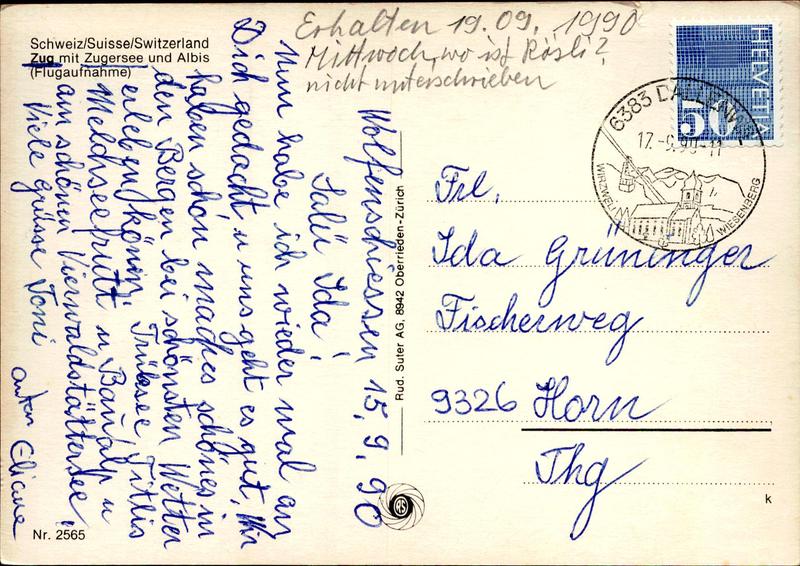 Schweiz/Suisse/Switzerland
Zug mit Zugersee und Albis
(Flugaufnahme)
Erhalten 19.09.1990
Mittwoch, wo ist Rösli?
nicht unterschrieben
Wolfenschiessen 15.9.90
Salü Ida!
Nun habe ich wieder mal an
Dich gedacht u uns geht es gut, Wir
haben schon maches schönes in
den Bergen bei schönsten Wetter
erleben könn. Trübsee, Titlis
Melchseefrutt u Banalp u
am schönen Vierwaldstättersee,
Viele grüsse Toni
Eliane
Nr. 2565
Rud. Suter AG, 8942 Oberrieden-Zürich
HELVETIA
50
6383 DALLENWIL
17.-9.90-11
WIRZWELI
WIESENBERG
Frl.
Ida Grüninger
Fischerweg
9326 Horn
Thg
k